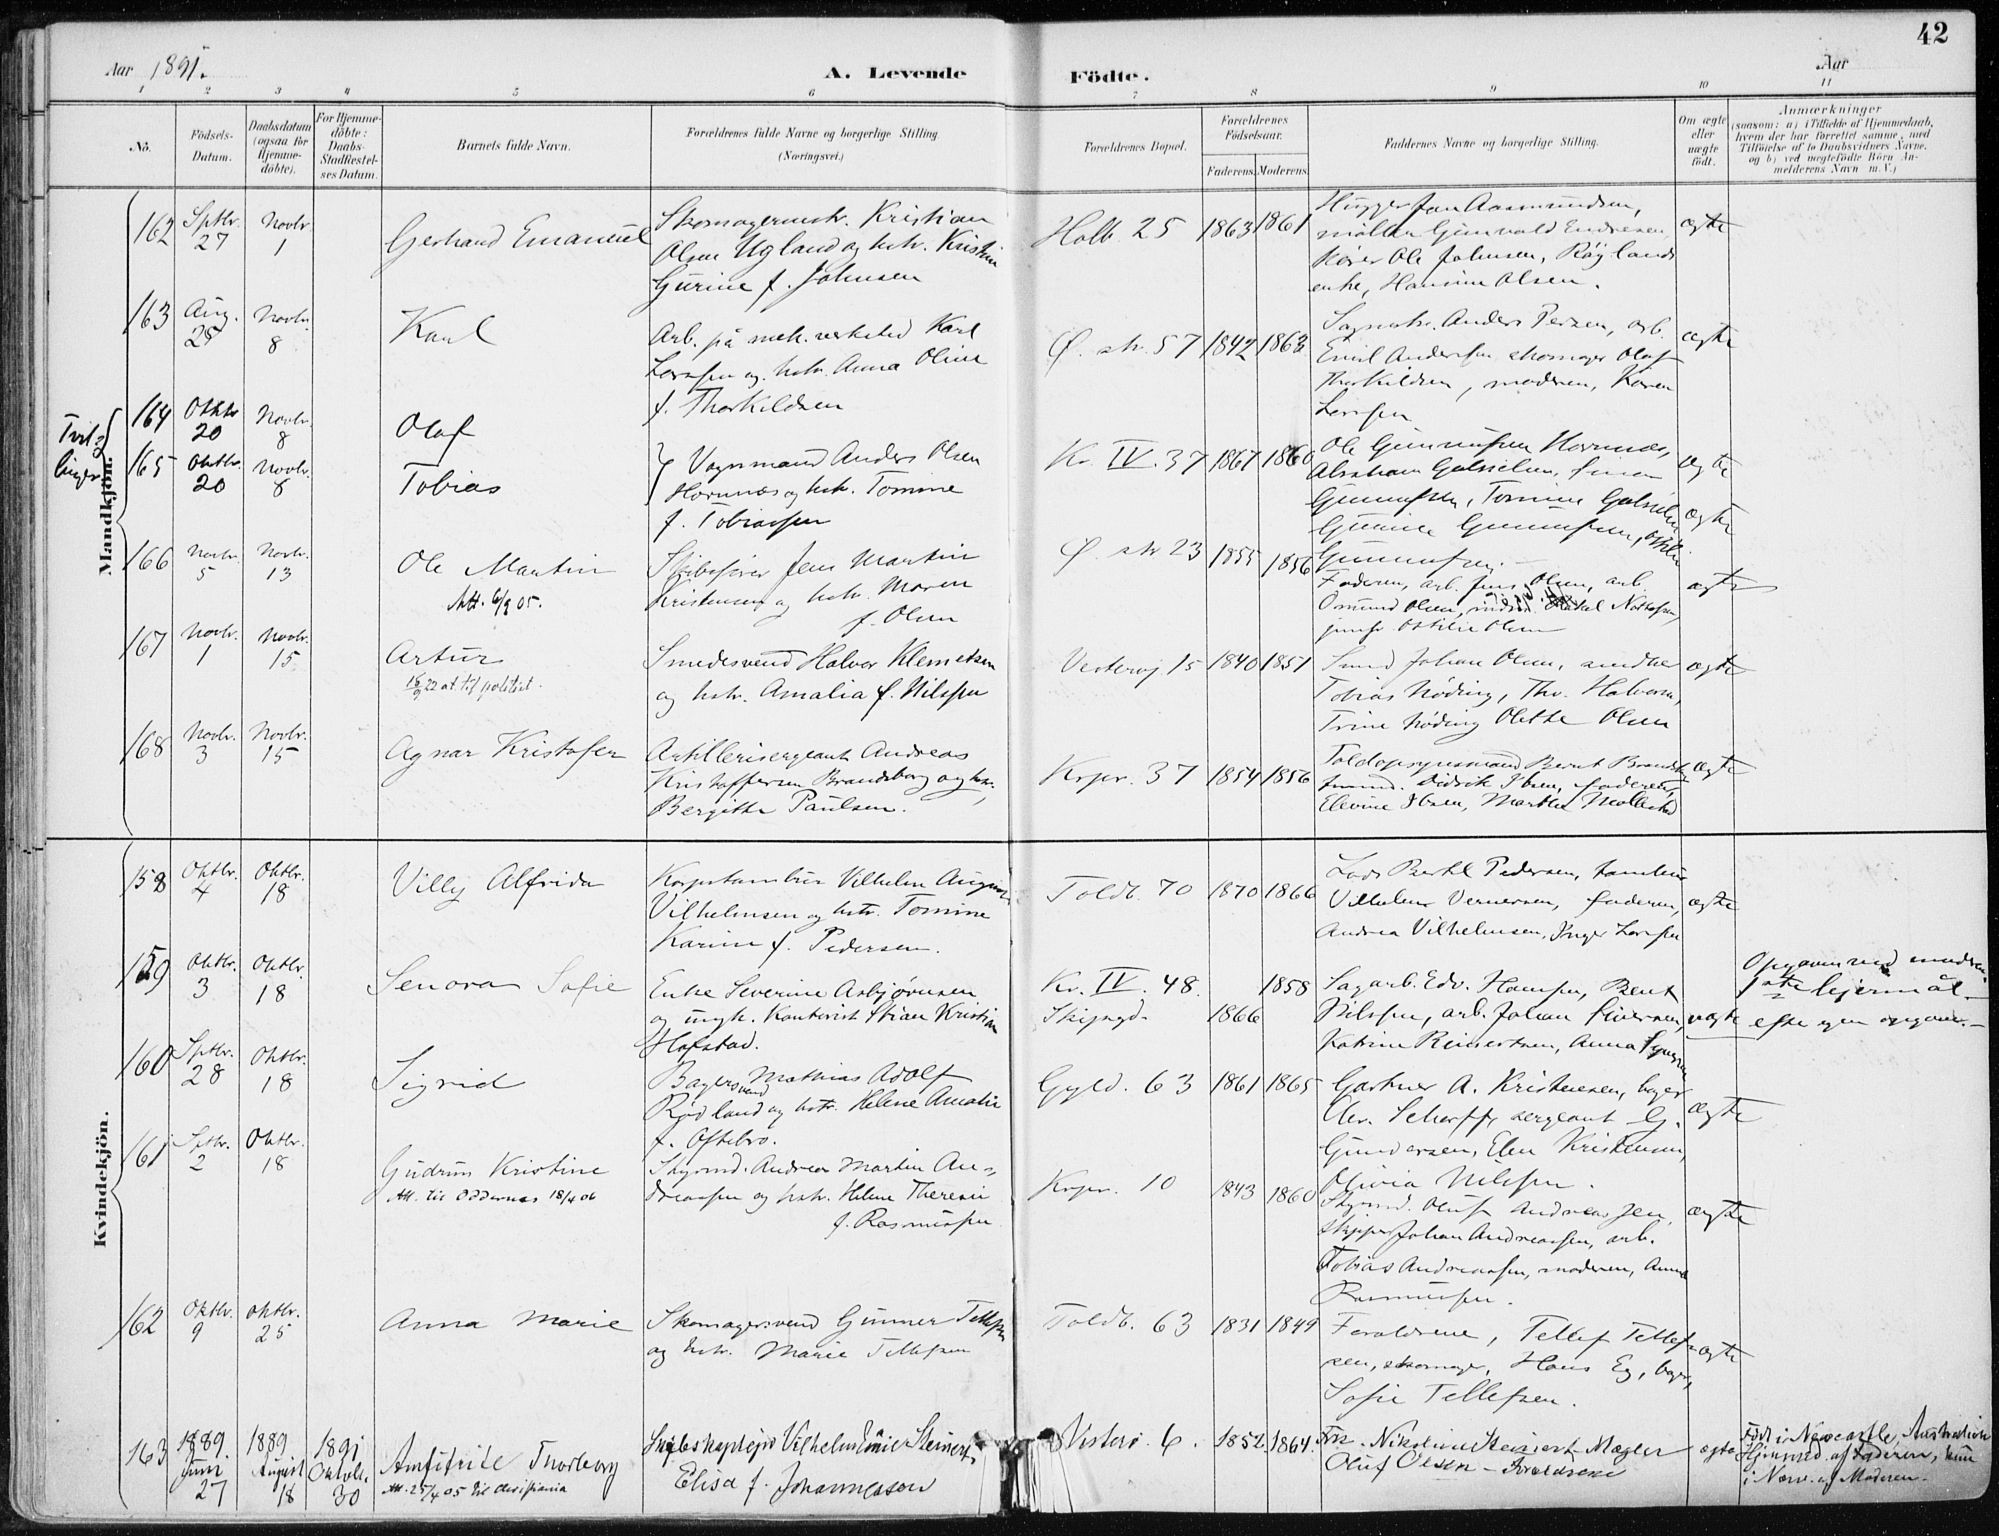 42
Aar 1891.
A. Levende Födte.
Aar
1 2 3 4 5 6 7 8 9 10 11
No.
Födsels-Datum.
Daabsdatum (ogsaa for Hjemme-døbte).
For Hjemme-döbte: Daabs-Stadfæstel-ses Datum.
Barnets fulde Navn.
Forældrenes fulde Navne og borgerlige Stilling. (Næringsvei.)
Forældrenes Bopæl.
Forældrenes Födselsaar.
Faderens. Moderens.
Faddernes Navne og borgerlige Stilling.
Om ægte eller uægte födt.
Anmærkninger
(saasom: a) i Tilfælde af Hjemmedaab,
hvem der har forrettet samme, med
Tilföielse af to Daabsvidners Navne,
og b) ved uægtefödte Börn An-
melderens Navn m. V.)
Mandkjön.
162 Sptbr. 27 Novbr. 1 Gerhard Emanuel
Skomagermstr. Kristian
Olsen Ugland og hstr. Kristine
Gurine f. Johnsen
Holb. 25 1863 1861
Hugger Jan Aasmundsen,
møller Gunvald Endresen
kører Ole Johnsen, Røylands
enke, Hansine Olsen.
ægte
163 Aug. 25 Novbr. 8 Karl
Arb. på mek. verksted Karl
Larssen og hstr. Anna Oline
f. Thorkildsen
Ø. str. 57 1842 1863
Anders Persen, arb.
Emil Anderssen, skomager Olaf
Thorkildsen, moderen, Karen
Larssen
ægte
Tvil-
linger
164 Oktbr. 20 Novbr. 8 Olaf
165 Oktbr. 20 Novbr. 8 Tobias
Vognmand Anders Olsen
Hornnes og hstr. Tomine
f. Tobiassen
Kr. IV. 37 1867 1860
Ole Gunnufsen Hornnes,
Abraham Gabrielsen,
Gunnufsen, Tomine Gabrielsen
Gunnufsen,
Gunnufsen.
ægte
ægte
166 Novbr. 5 Novbr. 13 Ole Martin
Att. 6/9 05.
Jens Martin
Kristensen og hstr. Maren
f. Olsen
Ø. str 23 1855 1856
Faderen, arb. Jens Olsen, arb.
Osmund Olsen,
Ostilie Olsen
ægte
167 Novbr. 1 Novbr. 15 Artur
15/9 22 at. til politiet.
Smedesvend Halvor Klemetsen
og hstr. Amalia f. Nilssen
Vestervej 15 1840 1851
Smed Johan Olsen, snedker
Tobias Nøding, Thv. Halvorsen,
Trine Nøding Olette Olsen
ægte
168 Novbr. 3 Novbr. 15 Agnar Kristofer
Artillerisergeant Andreas
Kristoffersen Brandsborg og hstr.
Bergitte Paulsen.
Krpr. 37 1854 1856
Toldopsynsmand Bernt
Didrik Ibsen, faderen,
Elevine Ibsen, Marthe
ægte
Kvindekjön.
158 Oktbr. 4 Oktbr. 18 Villy Alfrida
Korpstambur Vilhelm August
Vilhelmsen og hstr. Tomine
Karine f. Pedersen.
Toldb. 70 1870 1866
Lods Bertl Pedersen, tambur
Vilhelm Vernersen, faderen,
Andrea Vilhelmsen, Inger Larssen
ægte
159 Oktbr. 3 Oktbr. 18 Senora Sofie
Enke Severine Asbjørnsen
og ungk. Kontorist Stian Kristian
Hofstad.
Kr. IV. 48. 1858
Skipsgd. 1866
Sagarb. Edv. Hansen, Bent
Nilssen, arb. Johan Siversen,
Katrine Reinertsen, Anna
uægte
Opgaven ved moderen
efter egen opgave.
160 Sptbr. 28 Oktbr. 18 Sigrid
Bagersvend Mathias Adolf
Rødland og hstr. Helene Amalie
f. Oftebro.
Gyld. 63 1861 1865
Gartner A. Kristensen, bager
Alex. Scherff, sergeant G.
Gundersen, Elen Kristensen,
Olivia Nilssen.
ægte
161 Sptbr. 2 Oktbr. 18 Gudrun Kristine
Att. til Oddernes 18/4 06
Styrmd. Andreas Martin An-
dreassen og hstr. Helene Theresie
f. Rasmussen
Krpr. 10 1843 1860
Styrmd. Oluf Andreassen,
skipper Johan Andreassen, arb.
Tobias Andreassen, moderen, Anna
Rasmussen.
ægte
162 Oktbr. 9 Oktbr. 25 Anna Marie
Skomagersvend Gunner Tellefsen
og hstr. Marie Tellefsen
Toldb. 63 1831 1849
Forældrene, Tellef Tellef-
sen, skomager, Hans Eg, bager,
Sofie Tellefsen.
ægte
163 1889. Juni 27 1889 August 18 1891 Oktobr. 30 Amfitrite Thorborg
Att. 25/4 05 til Christiania
Skibskaptejn Vilhelm Emil Steinert,
Elisa f. Johannessen
Vesterv. 6. 1852 1864.
Frk. Nikoline Steinert, Mægler
Oluf Olsen – Forældrene
ægte
Født i Newcastle, Australien
Hjemmed. af Faderen, kun
i Nærv. af Moderen.